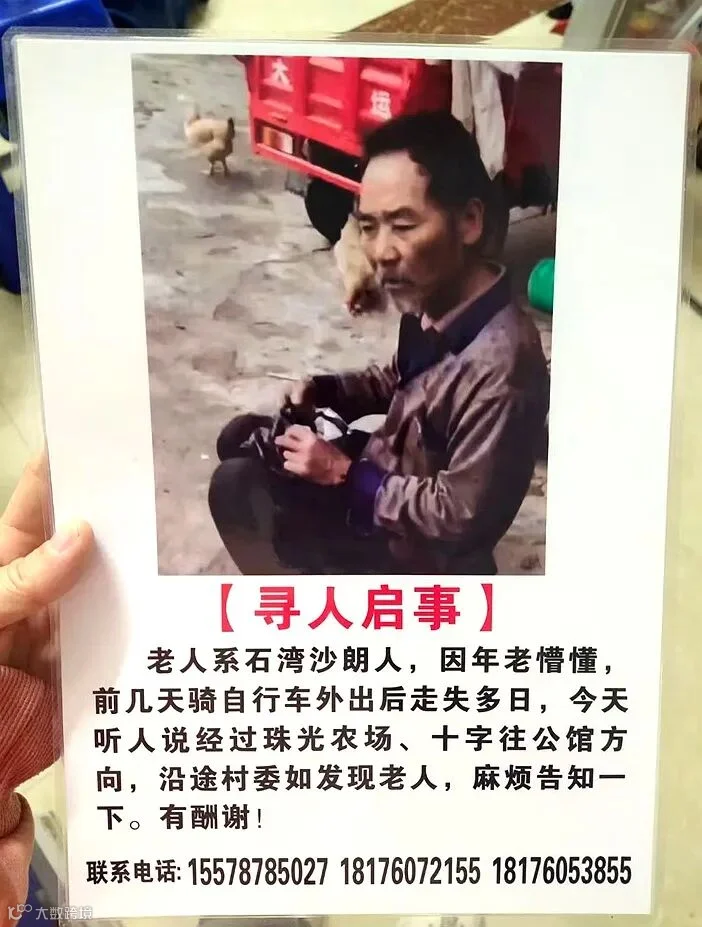 大
运
【寻人启事】
老人系石湾沙朗人，因年老懵懂，
前几天骑自行车外出后走失多日，今天
听人说经过珠光农场、十字往公馆方
向，沿途村委如发现老人，麻烦告知一
下。有酬谢！
联系电话：15578785027 18176072155 18176053855
大数跨境